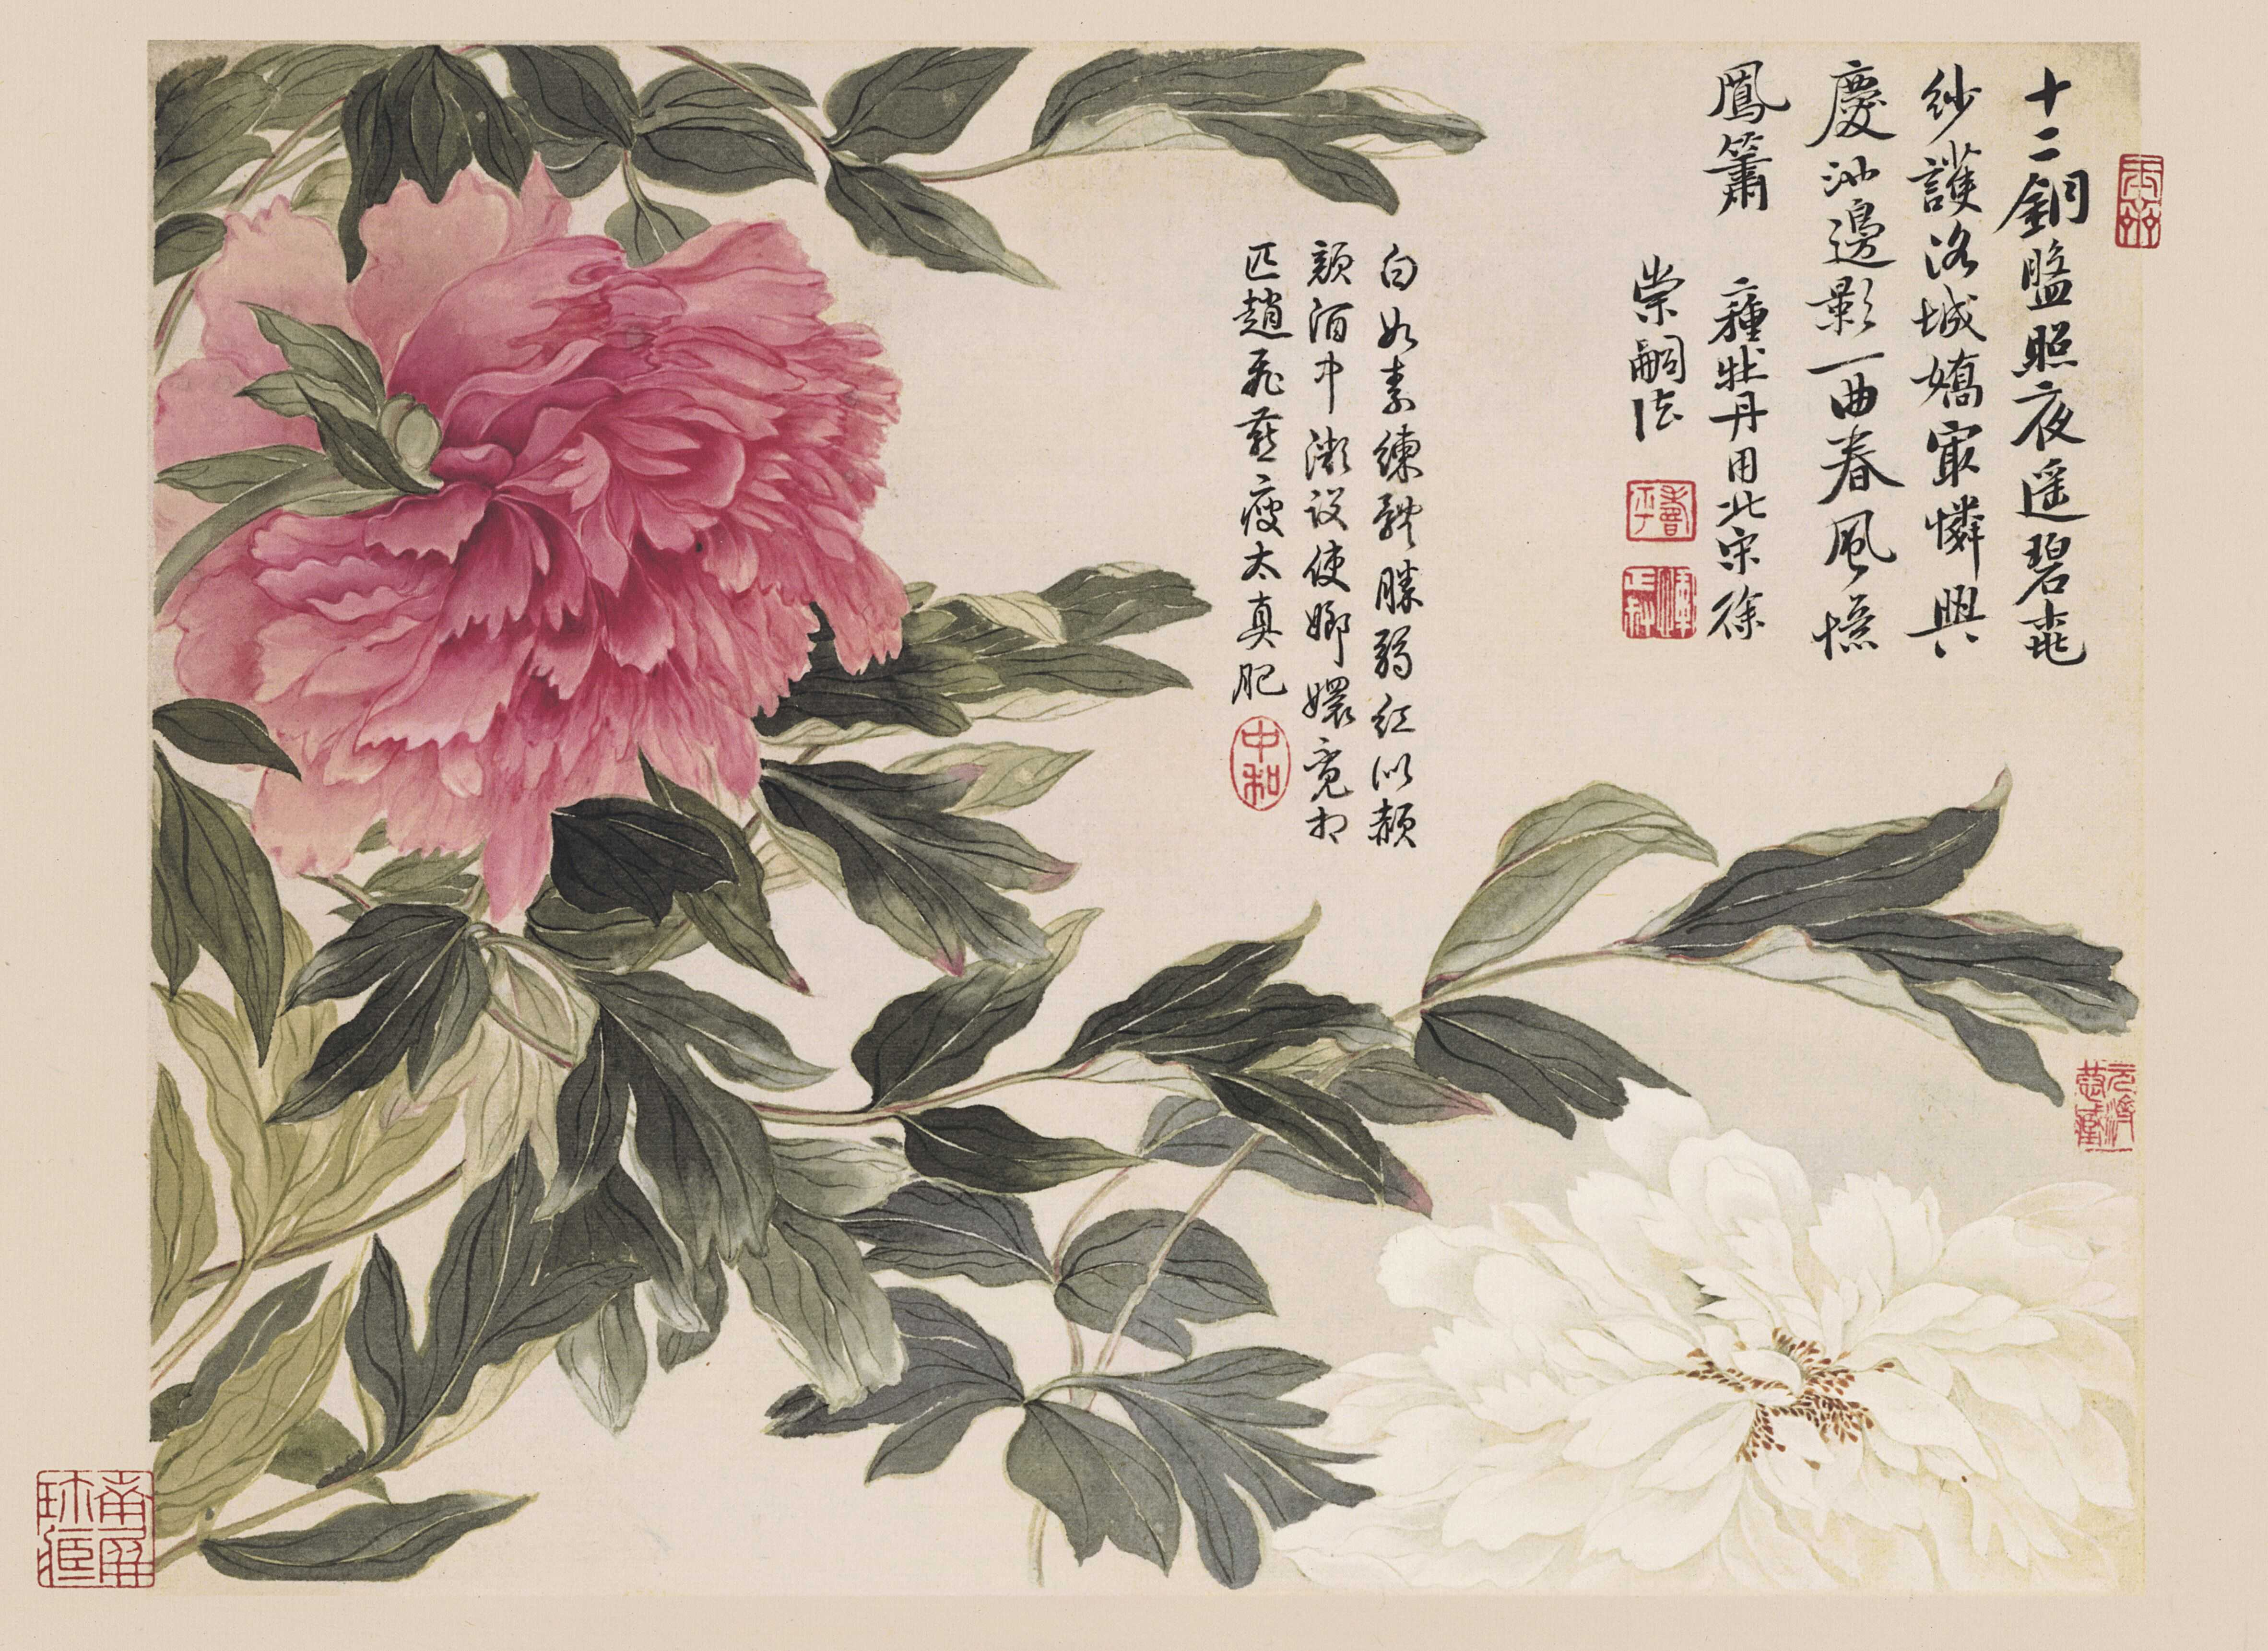 十二銅盤照夜遥碧桃
紗護洛城嬌寂憐興
慶池邊影一曲春風憶
鳳簫
二種牡丹用北宋徐
崇嗣法
白如素練輕勝弱紅似頳
顏酒中漸設使娜嬛競相
匹趙飛燕瘦太真肥
中和